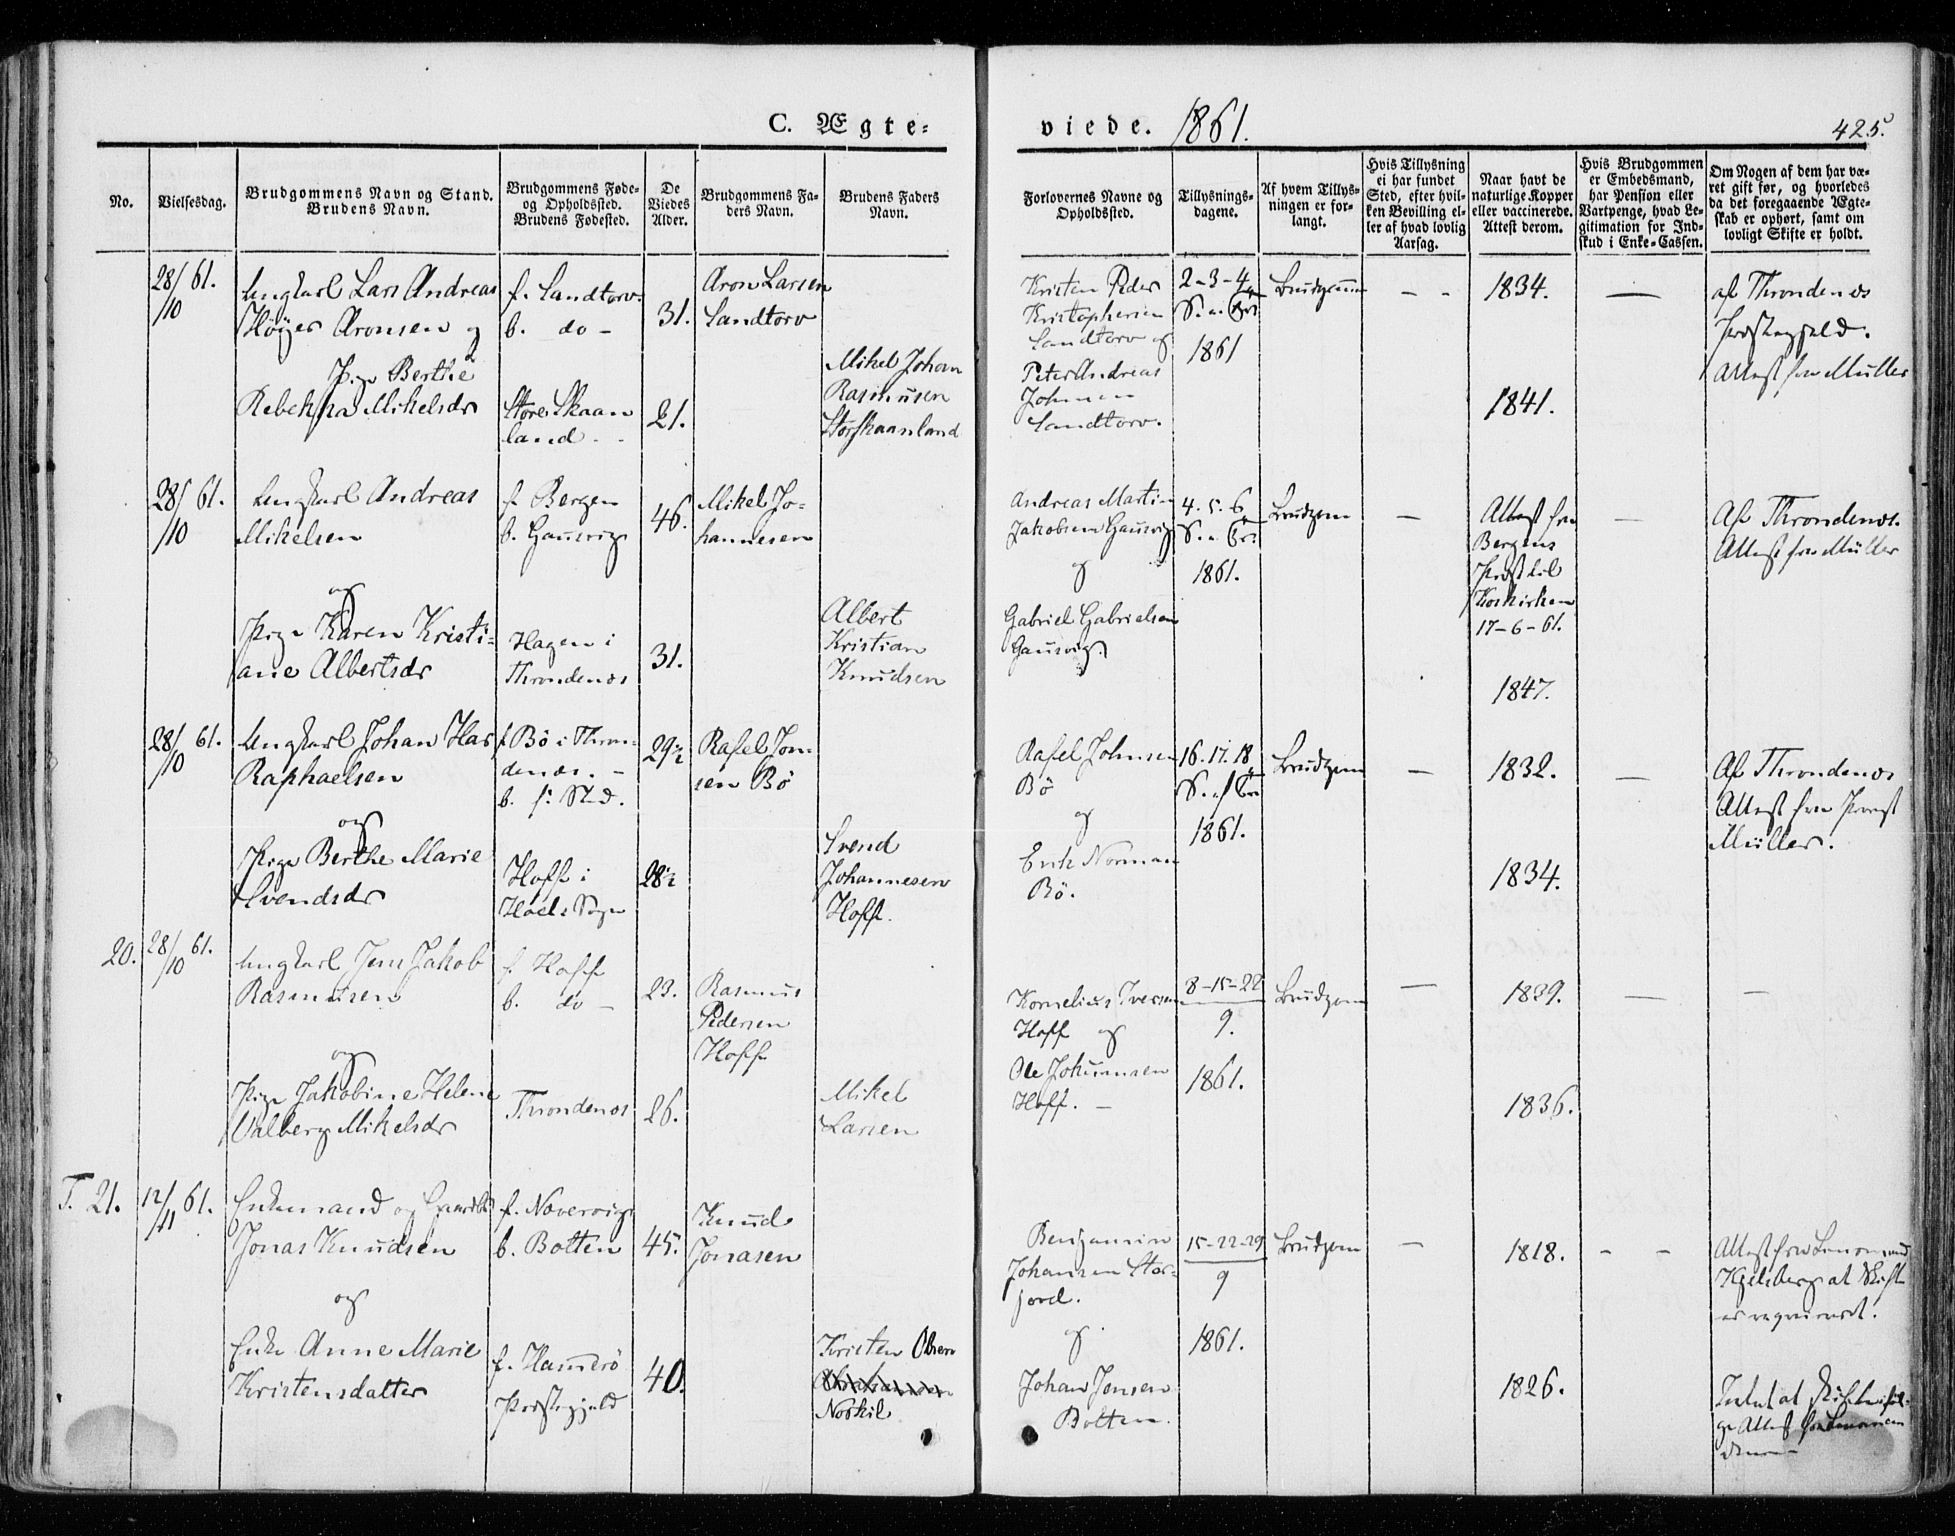 C. Ægte-
viede. 1861.
425.
No.
Vielsesdag.
Brudgommens Navn og Stand.
Brudens Navn.
Brudgommens Føde-
og Opholdssted.
Brudens Fødested.
De
Viedes
Alder.
Brudgommens Fa-
ders Navn.
Brudens Faders
Navn.
Forlovernes Navne og
Opholdssted.
Tillysnings-
dagene.
Af hvem Tillys-
ningen er for-
langt.
Hvis Tillysning
ei har fundet
Sted, efter hvil-
ken Bevilling el-
ler af hvad lovlig
Aarsag.
Naar havt de
naturlige Kopper
eller vaccinerede.
Attest derom.
Hvis Brudgommen
er Embedsmand,
har Pension eller
Vartpenge, hvad Le-
gitimation for Ind-
skud i Enke-Cassen.
Om Nogen af dem har væ-
ret gift før, og hvorledes
da det foregaaende Ægte-
skab er ophørt, samt om
lovligt Skifte er holdt.
28/10 61.
Ungkarl Lars Andreas
Høyer Aronsen og
Pige Berthe
Rebekka Mikelsdr
f. Sandtorv.
b. do -
Store Skaan
land
31.
21.
Aron Larsen
Sandtorv
Mikel Johan
Rasmusen
Storskaanland
Kristen Peder
Kristophersen
Sandtorv og
Peter Andreas
Johnsen
Sandtorv.
2-3-4
S. e. Tri
1861
Brudgommen
- -
1834.
1841.
—
af Throndenæs
Prestegjeld.
Attest fra Müller
28/10 61.
Ungkarl Andreas
Mikelsen
og
Pige Karen Kristi-
ane Albertsdr
f. Bergen
b. Gausvig
Hagen i
Throndenæs
46.
31.
Mikel Jo-
hannesen
Albert
Kristian
Knudsen
Andreas Martin
Jakobsen Gausvig
og
Gabriel Gabrielsen
Gausvig.
4. 5. 6
S. e. Tri
1861.
Brudgom
—
Attest fra
Bergens
Prest til
Korskirken
17-6-61.
1847.
—
Af Throndenæs.
Attest fra Müller
28/10 61.
Ungkarl Johan Has
Raphaelsen
og
Pige Berthe Marie
Svendsdr
f. Bö i Thron-
denæs. -
b. s: Sted.
Hoff i
Hoels Sogn
29½
28½
Rafel Jon-
sen Bö
Svend
Johannesen
Hoff.
Rafel Johnsen
Bö
og
Erik Norman
Bö.
16. 17. 18
S. ef Tri
1861.
Brudgom
—
1832.
1834.
—
Af Throndenæs
Attest fra Provst
Müller.
20.
28/10 61.
Ungkarl Jens Jakob
Rasmusen
og
Pige Jakobine Helene
Valberg Mikelsdr
f. Hoff
b. do -
Throndenæs
23.
26.
Rasmus
Pedersen
Hoff
Mikel
Larsen
Kornelius Iversen
Hoff og
Ole Johannesen
Hoff. -
8-15-22
9.
1861.
Brudgom
—
1839.
1836.
—
—
T. 21.
12/11 61.
Enkemand og Gaardbr
Jonas Knudsen
og
Enke Anne Marie
Kristensdatter
f. Noverevig
b. Botten
f. Hamerö
Prestegjeld
45.
40.
Knud
Jonasen
Kristen Olsen
Norkil
Benjamin
Johansen Stor-
jord.
og
Johan Jensen
Botten.
15-22-29
9
1861.
Brudgom
—
1818.
1826.
- -
Attest fra Lensmand
Kjelsberg at Skifte
er requireret.